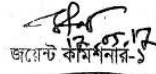 ১৭.০৫.১৭
জয়েন্ট কমিশনার-১